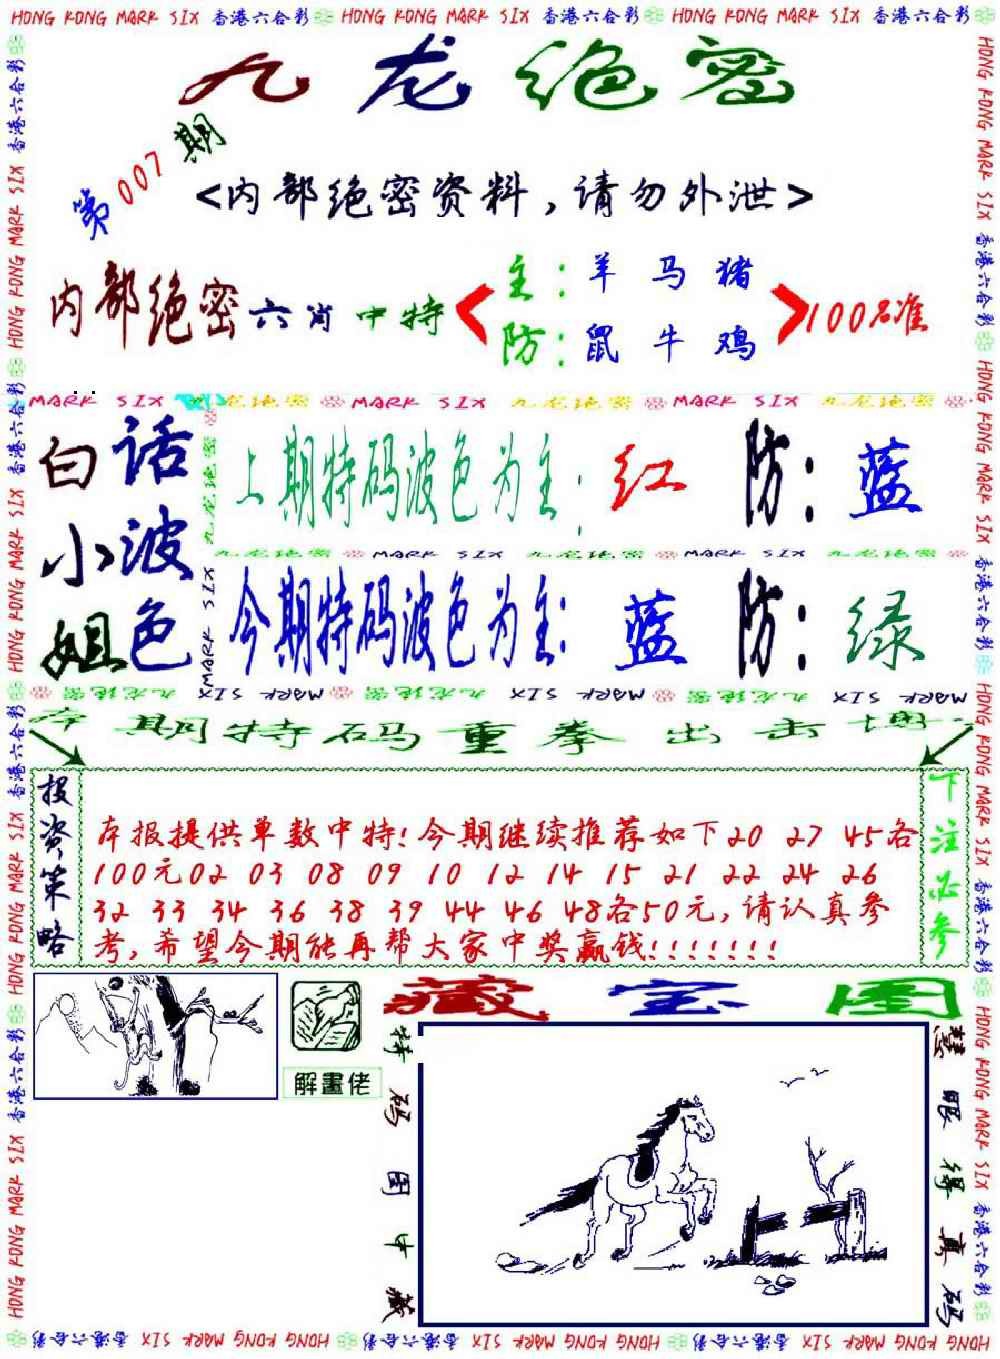 HONG KONG MARK SIX 香港六合彩 HONG KONG MARK SIX 香港六合彩 HONG KONG MARK SIX 香港六合彩
九龙绝密
第007期
<内部绝密资料,请勿外泄>
内部绝密六肖中特
主:羊 马 猪
防:鼠 牛 鸡
100%准
MARK SIX 九龙绝密 MARK SIX 九龙绝密 MARK SIX 九龙绝密
白小姐
话波色
上期特码波色为主:红 防:蓝
九龙绝密 MARK SIX 九龙绝密 MARK SIX 九龙绝密
今期特码波色为主:蓝 防:绿
九龙绝密 MARK SIX 九龙绝密 MARK SIX 九龙绝密 MARK SIX
本期特码重拳出击
投资策略
本报提供单数中特!今期继续推荐如下20 27 45各
100元02 03 08 09 10 12 14 15 21 22 24 26
32 33 34 36 38 39 44 46 48各50元,请认真参
考,希望今期能再帮大家中奖赢钱!!!!!!!
下注必参
解畫佬
藏宝图
特码图中藏
慧眼得真码
HONG KONG MARK SIX 香港六合彩 HONG KONG MARK SIX 香港六合彩 HONG KONG MARK SIX 香港六合彩